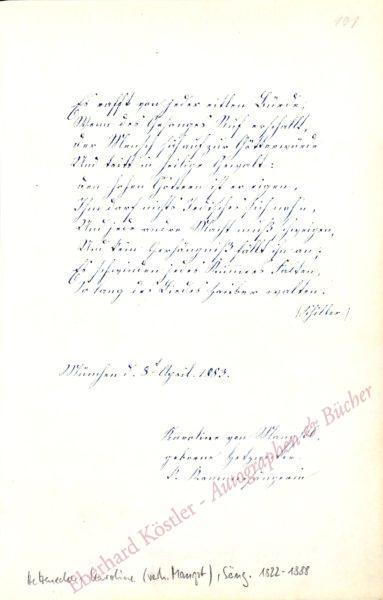 101
Es rafft von jeder eitlen Bürde,
Wenn des Gesanges Ruf erschallt,
Der Mensch sich auf zur Götterwürde
Und tritt in heilige Gewalt:
Den hohen Göttern ist er eigen,
Ihm darf nichts Irdisches sich nahn,
Und jede andre Macht muß schweigen,
Und kein Verhängniß fällt ihn an;
Es schwinden jedes Kummers Falten,
So lang des Liedes Zauber walten.
(Schiller.)
München d. 8t April. 1883.
Karoline von Mangstl.
geborne Hetzenecker
k. Kammersängerin
Eberhard Köstler - Autographen & Bücher
Hetzenecker, Karoline (verh. Mangstl), Säng. 1822-1888